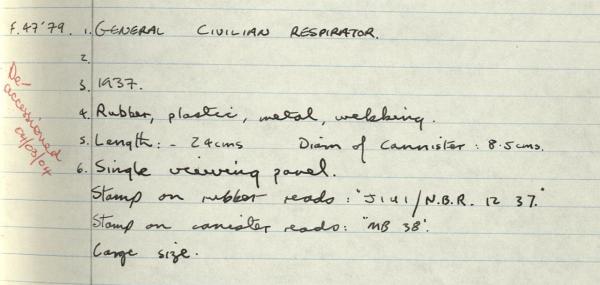 F.47'79. 1. GENERAL CIVILIAN RESPIRATOR.
2.
3. 1937.
4. Rubber, plastic, metal, webbing.
5. Length: - 24cms Diam of Cannister: 8.5cms.
6. Single viewing panel.
Stamp on rubber reads: "J141/N.B.R. 12 37."
Stamp on canister reads: "MB 38".
Large size.
De-
accessioned
04/03/04